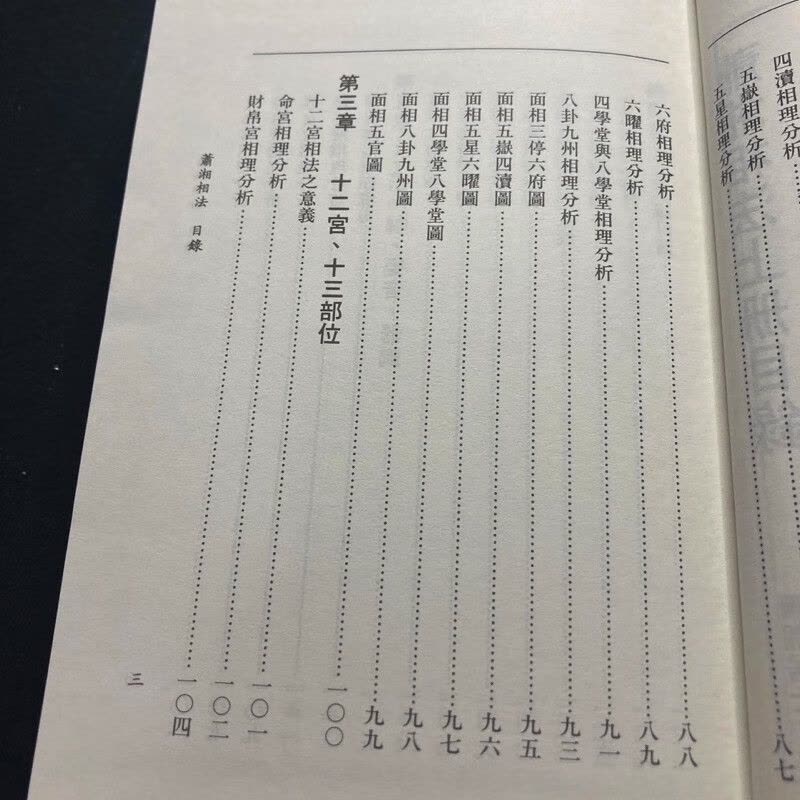 四瀆相理分析
五嶽相理分析
五星相理分析……八七
六府相理分析……八八
六曜相理分析……八九
四學堂與八學堂相理分析……九一
八卦九州相理分析……九三
面相三停六府圖……九五
面相五嶽四瀆圖……九六
面相五星六曜圖……九七
面相四學堂八學堂圖……九八
面相八卦九州圖……九九
面相五官圖……一〇〇
第三章 十二宮、十三部位
十二宮相法之意義……一〇一
命宮相理分析……一〇二
財帛宮相理分析……一〇四
蕭湘相法 目錄
三